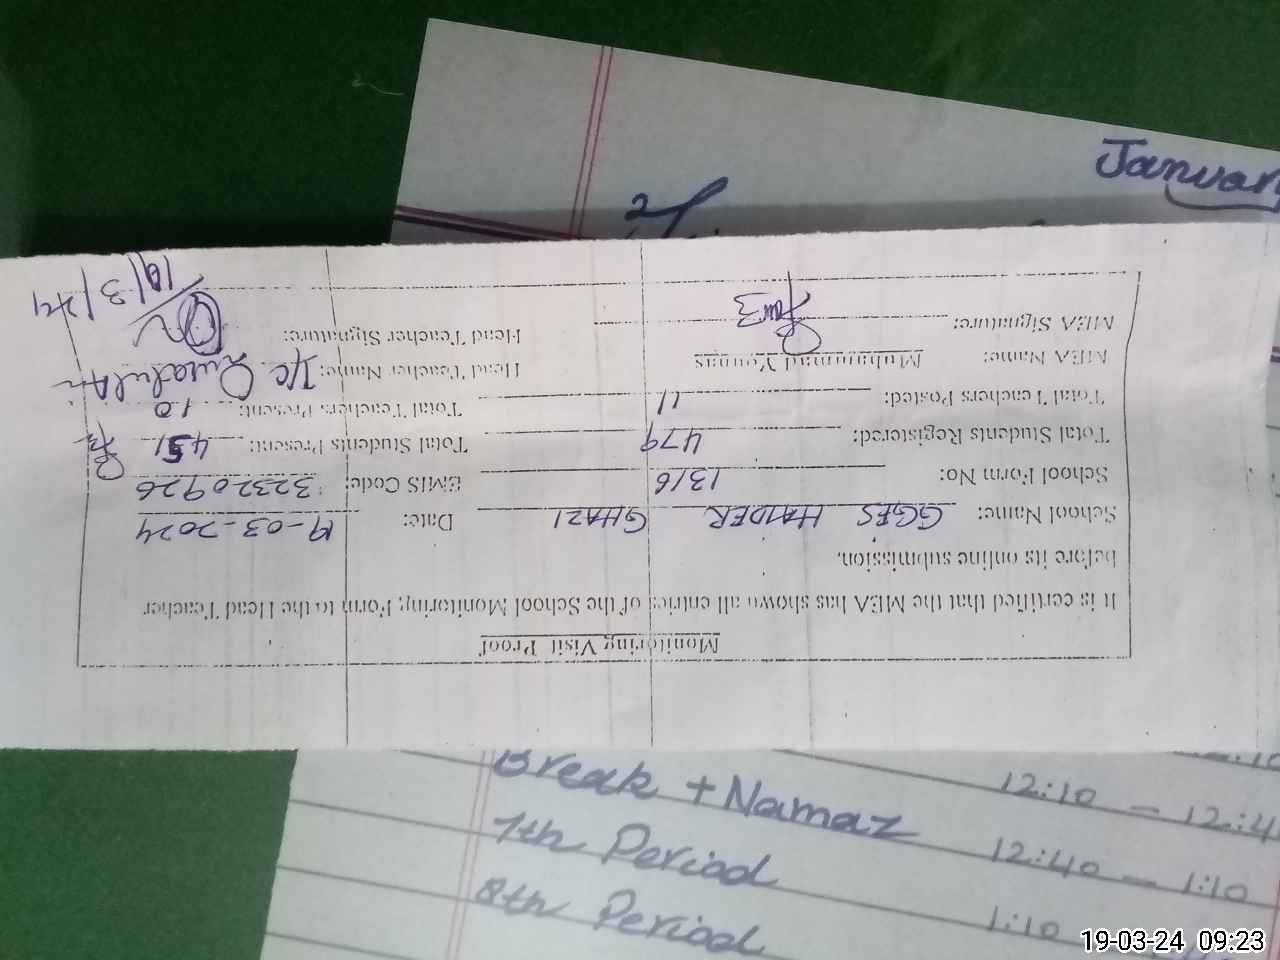 January
Monitoring Visit Proof
It is certified that the MEA has shown all entries of the School Monitoring Form to the Head Teacher
before its online submission.
School Name: GGES HAIDER GHAZI Date: 19-03-2024
School Form No: 1316 EMIS Code: 32320926
Total Students Registered: 479 Total Students Present: 451
Total Teachers Posted: 11 Total Teachers Present: 10
MEA Name: Muhammad Younas Head Teacher Name: I/C Quratul Ain
MEA Signature: Head Teacher Signature:
/3/24
Break + Namaz 12:10 - 12:4
7th Period 12:40 - 1:10
8th Period 1:10
19-03-24 09:23